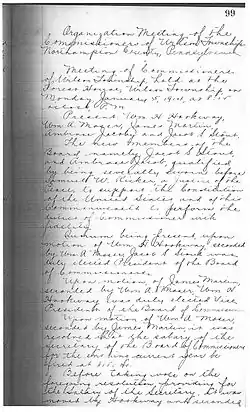 99
Organization Meeting of the
Commissioners of Wilson Township
Northampton County, Pennsylvania
Meeting of Commissioners
of Wilson Township, held at the
House, Wilson Township on
Monday, January 5, at 8:15
o'clock P.M.
Present, Wm H. Hookway,
Wm A. Moser, James Martin,
Ambrose Jacoby and Jacob L. Stout.
The new Members of the
Board, namely, Jacob L. Stout,
and Ambrose Jacoby, qualified
by being severally sworn before
Samuel W. Justice of the
Peace, to support the Constitution
of the United States and of this
Commonwealth & perform the
duties of Commissioner with
fidelity.
Quorum being present, upon
motion of Wm. H. Hookway, seconded
by Wm A. Moser, Jacob L. Stout was
duly elected President of the Board
of Commissioners.
Upon motion of James Martin,
seconded by Wm A. Moser, Wm. H.
Hookway was duly elected Vice
President of the Board of
Upon motion of Wm A. Moser,
seconded by James Martin, it was
resolved that the salary of the
Secretary of the Board of Commissioners
for the ensuing current year be
fixed at
Before taking vote on the
foregoing resolution, providing for
the salary of the Secretary, it was
moved by Hookway and seconded